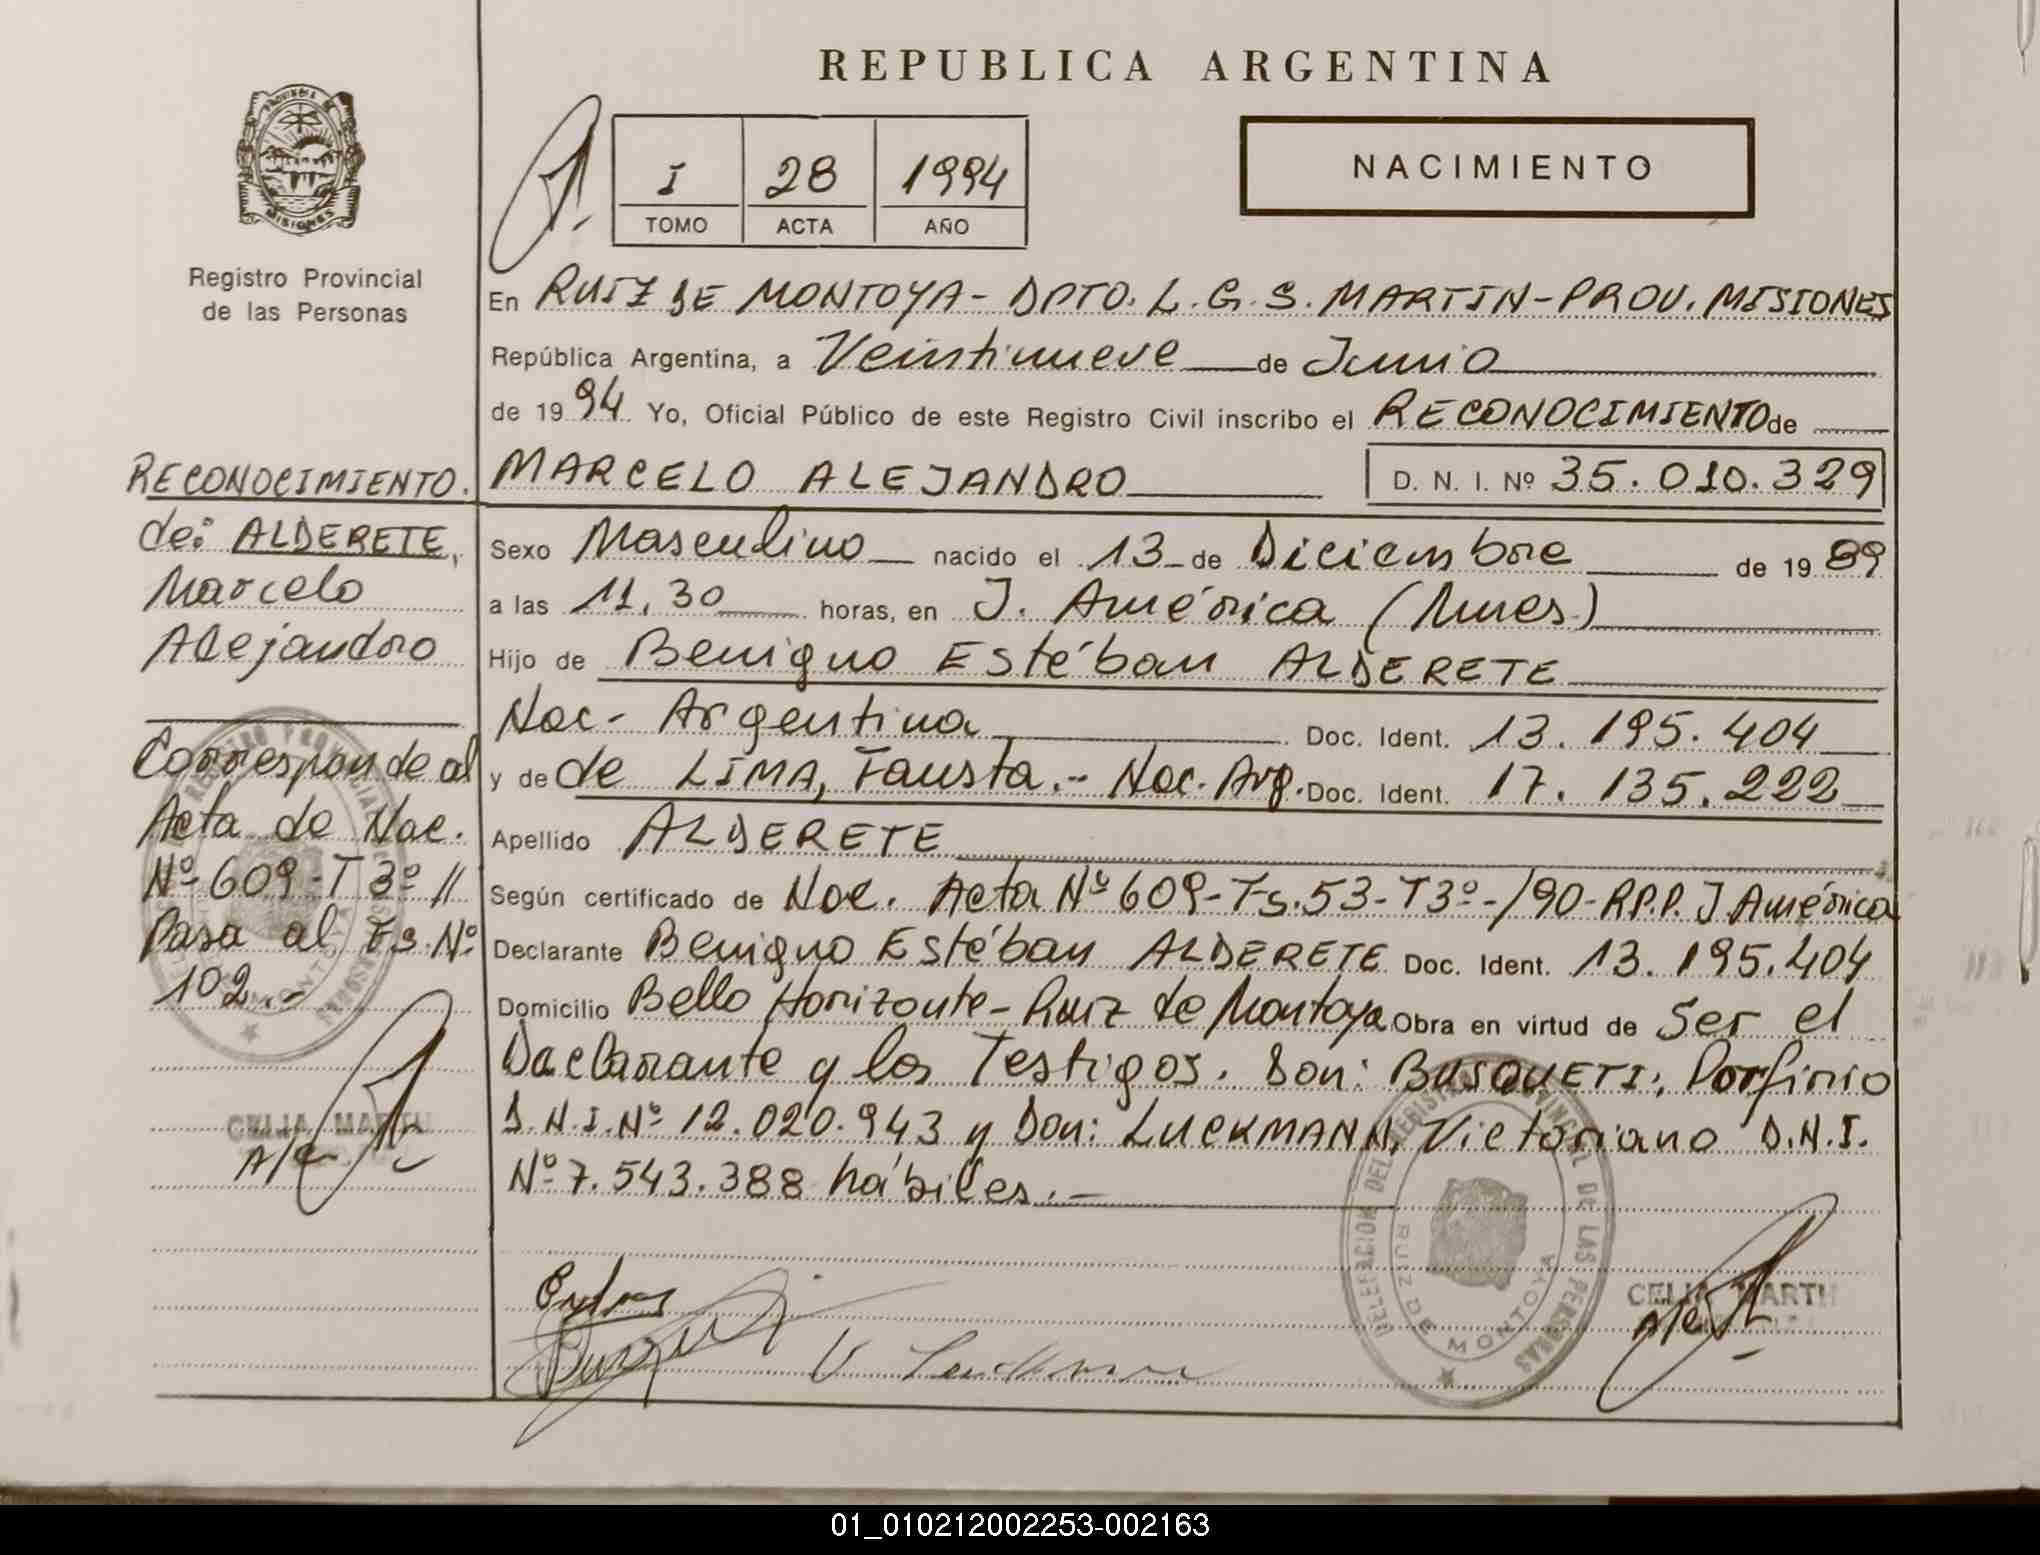 REPUBLICA ARGENTINA
I 28 1994
TOMO ACTA AÑO
NACIMIENTO
PROVINCIA DE
MISIONES
Registro Provincial
de las Personas
En RUIZ DE MONTOYA - DPTO. L. G. S. MARTIN - PROV. MISIONES
República Argentina, a Veintinueve de Junio
de 1994 Yo, Oficial Público de este Registro Civil inscribo el RECONOCIMIENTO de
MARCELO ALEJANDRO D. N. I. Nº 35.010.329
Sexo Masculino nacido el 13 de Diciembre de 1989
a las 11,30 horas, en J. América (Mnes.)
Hijo de Benigno Estéban ALDERETE
Nac- Argentina Doc. Ident. 13.195.404
y de de LIMA, Fausta.- Nac. Arg. Doc. Ident. 17.135.222
Apellido ALDERETE
Según certificado de Nac. Acta Nº 609-Fs.53-T3º-/90-RP.P. J América
Declarante Benigno Estéban ALDERETE Doc. Ident. 13.195.404
Domicilio Bello Horizonte - Ruiz de Montoya Obra en virtud de Ser el
Declarante y los Testigos. Don: BUSQUETI, Porfirio
D.N.I. Nº 12.020.943 y Don: LUCKMANN, Victoriano D.N.I.
Nº 7.543.388 hábiles.-
RECONOCIMIENTO.
de: ALDERETE,
Marcelo
Alejandro
Corresponde al
Acta de Nac.
Nº 609-T 3º //
Pasa al Fs. Nº
102.-
CELIA MARTIN
DELEGACION DEL REGISTRO PROVINCIAL DE LAS PERSONAS
RUIZ DE MONTOYA
CELIA MARTIN
01_010212002253-002163